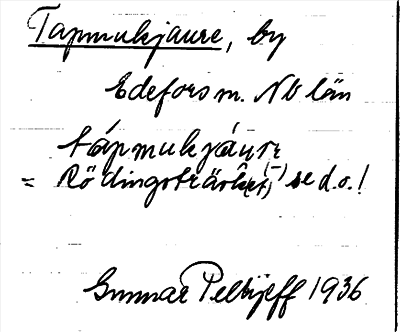 Tapmukjaure, by
Edefors sn. Nb län
tápmukjáurē
= Rödingsträsket, (-) se d.o.!
Gunnar Pellijeff 1936